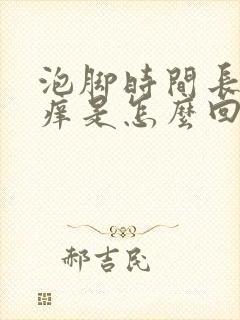 泡脚時間長
痒是怎麽回
郝吉民